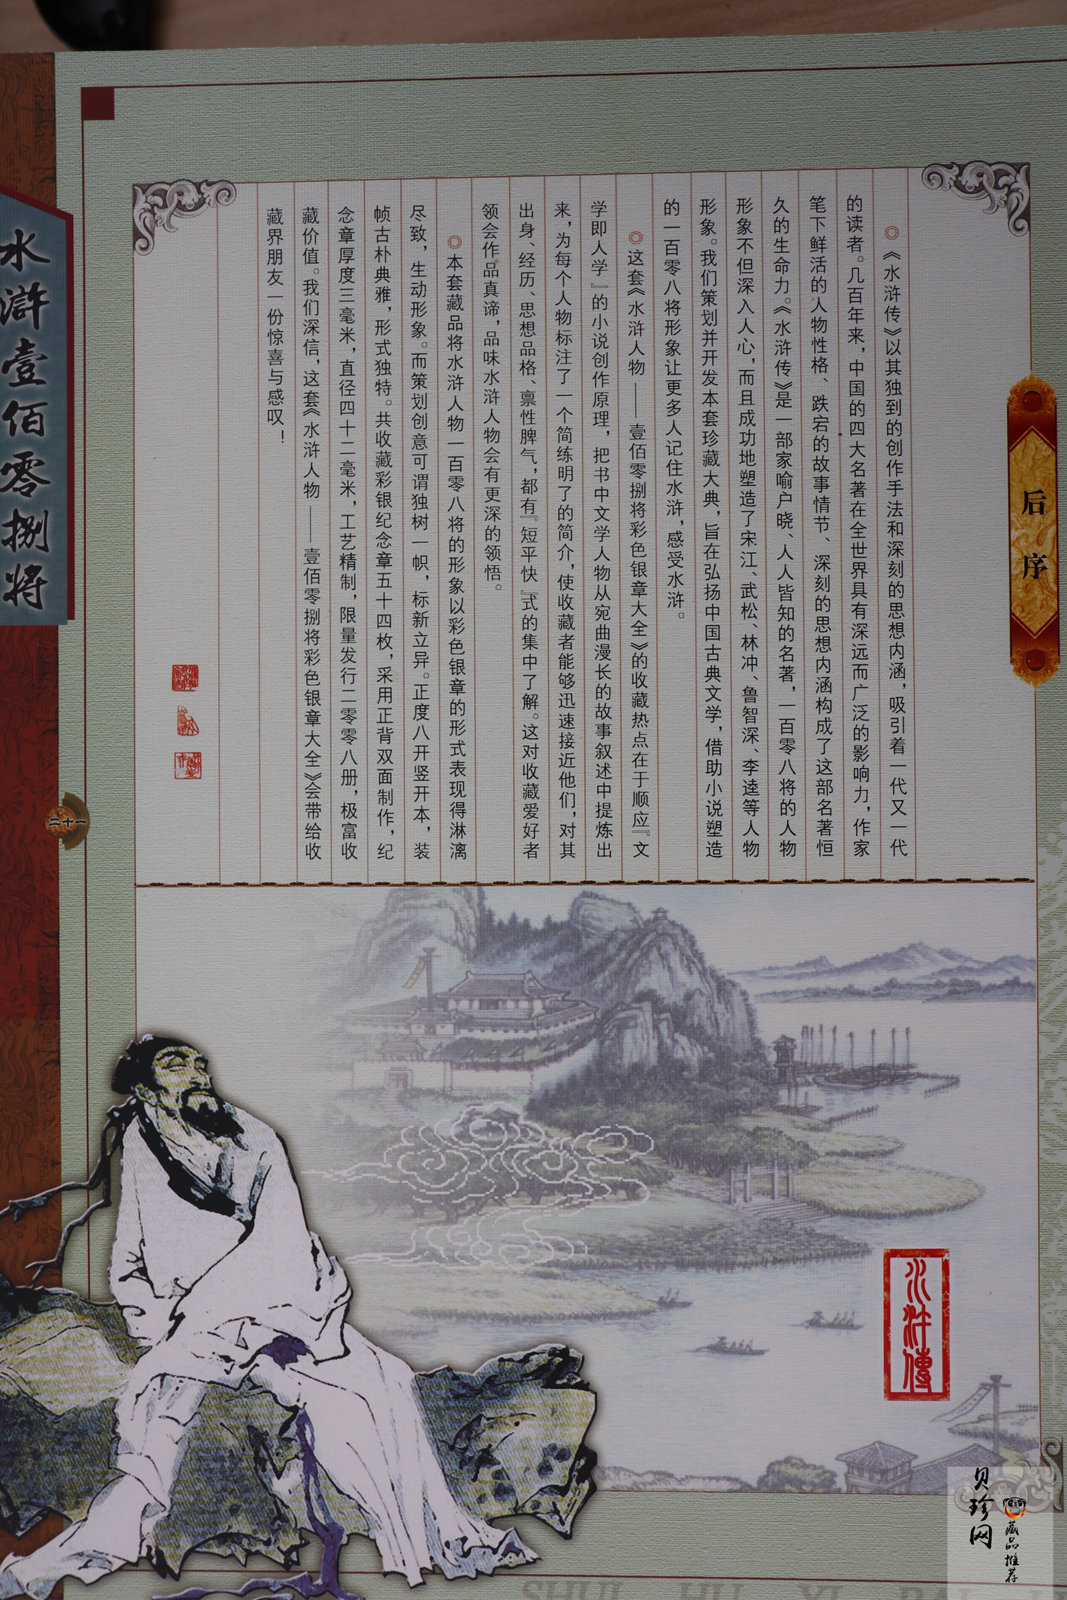 后序
◎《水浒传》以其独到的创作手法和深刻的思想内涵，吸引着一代又一代
的读者。几百年来，中国的四大名著在全世界具有深远而广泛的影响力，作家
笔下鲜活的人物性格、跌宕的故事情节、深刻的思想内涵构成了这部名著恒
久的生命力。《水浒传》是一部家喻户晓、人人皆知的名著，一百零八将的人物
形象不但深入人心，而且成功地塑造了宋江、武松、林冲、鲁智深、李逵等人物
形象。我们策划并开发本套珍藏大典，旨在弘扬中国古典文学，借助小说塑造
的一百零八将形象让更多人记住水浒，感受水浒。
◎这套《水浒人物——壹佰零捌将彩色银章大全》的收藏热点在于顺应『文
学即人学』的小说创作原理，把书中文学人物从宛曲漫长的故事叙述中提炼出
来，为每个人物标注了一个简练明了的简介，使收藏者能够迅速接近他们，对其
出身、经历、思想品格、禀性脾气，都有『短平快』式的集中了解。这对收藏爱好者
领会作品真谛，品味水浒人物会有更深的领悟。
◎本套藏品将水浒人物一百零八将的形象以彩色银章的形式表现得淋漓
尽致，生动形象。而策划创意可谓独树一帜，标新立异。正度八开竖开本，装
帧古朴典雅，形式独特。共收藏彩银纪念章五十四枚，采用正背双面制作，纪
念章厚度三毫米，直径四十二毫米，工艺精制，限量发行二零零八册，极富收
藏价值。我们深信，这套《水浒人物——壹佰零捌将彩色银章大全》会带给收
藏界朋友一份惊喜与感叹！
水浒壹佰零捌将
二十一
水浒傳
贝珍网
藏品推荐
SHUI HU YI BAI